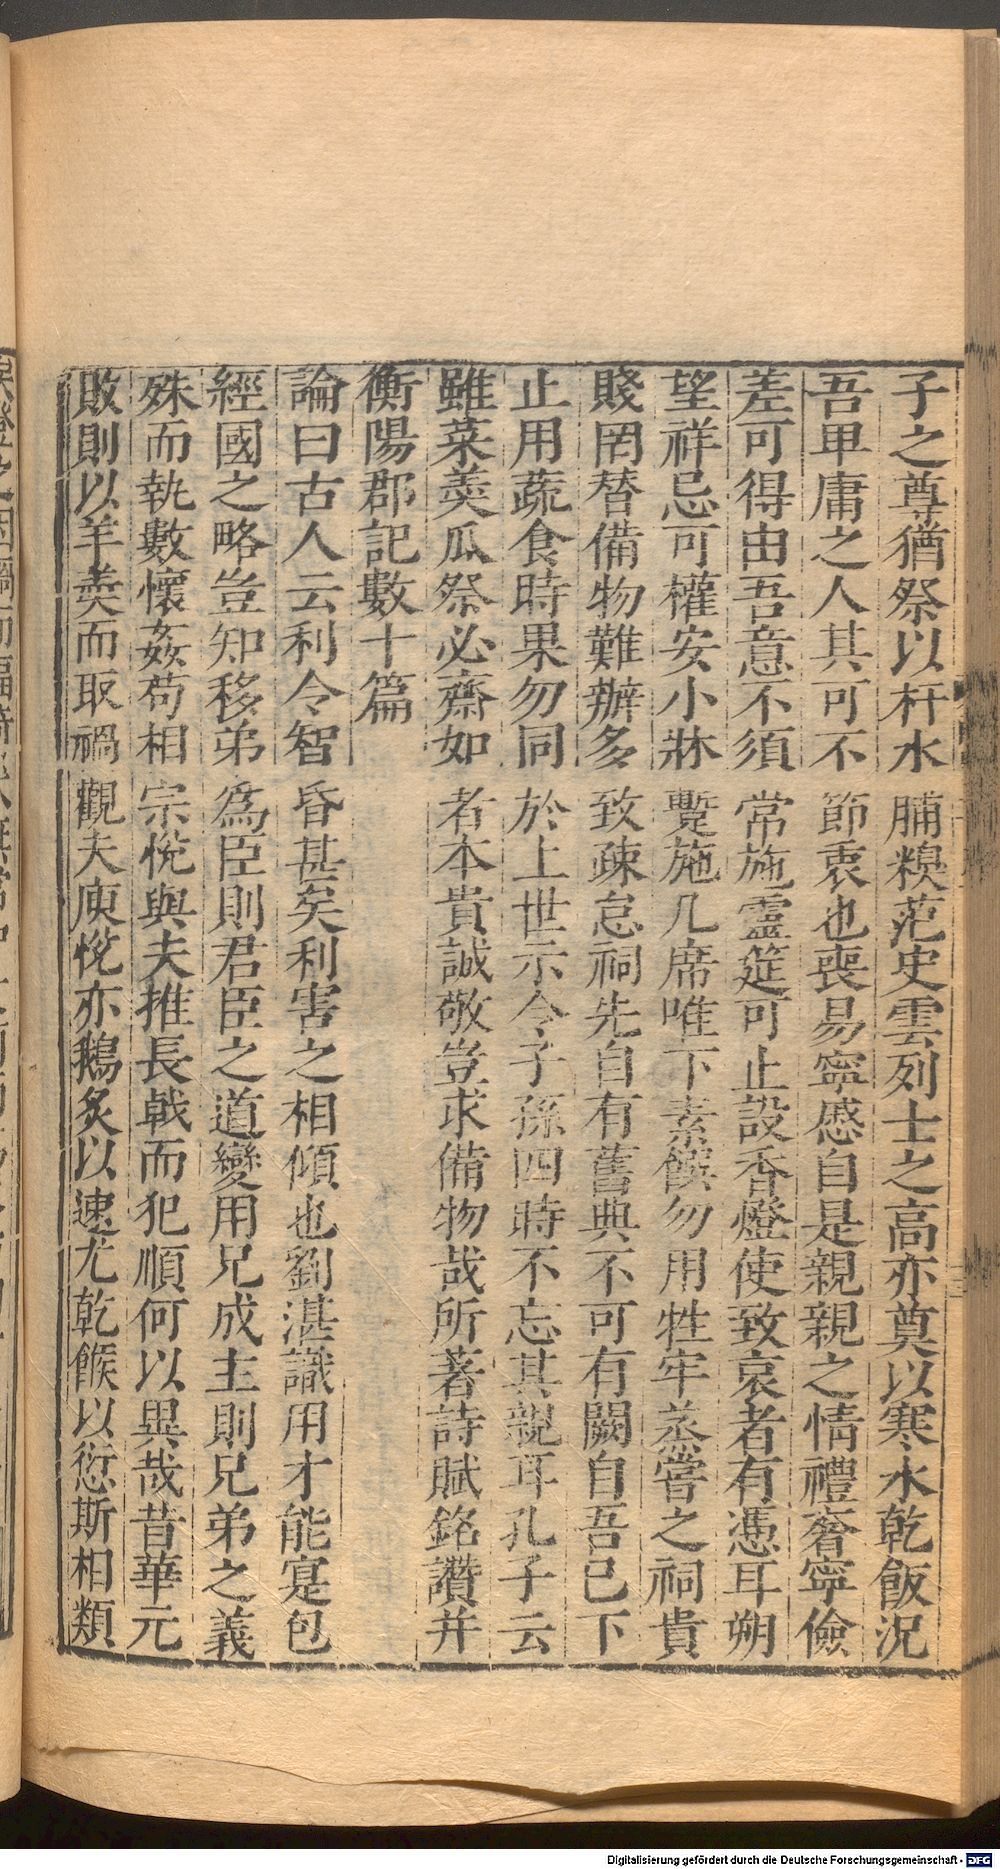 子之尊猶祭以杅水脯糗范史雲列士之高亦奠以寒水乾飯況
吾卑庸之人其可不節衷也喪易寧慼自是親親之情禮奢寧儉
差可得由吾意不須常施靈筵可止設香燈使致哀者有憑耳朔
望祥忌可權安小牀蹔施几席唯下素饌勿用牲牢蒸嘗之祠貴
賤罔替備物難辦多致疎怠祠先自有舊典不可有闕自吾已下
止用蔬食時果勿同於上世示令子孫四時不忘其親耳孔子云
雖菜羮瓜祭必齋如者本貴誠敬豈求備物哉所著詩賦銘讚并
衡陽郡記數十篇
論曰古人云利令智昏甚矣利害之相傾也劉湛識用才能寔包
經國之略豈知移弟為臣則君臣之道變用兄成主則兄弟之義
殊而執數懷姦苟相宗悅與夫推長戟而犯順何以異哉昔華元
敗則以羊羮而取禍觀夫庾悅亦鵝炙以速尤乾餱以愆斯相類
Digitalisierung gefördert durch die Deutsche Forschungsgemeinschaft - DFG